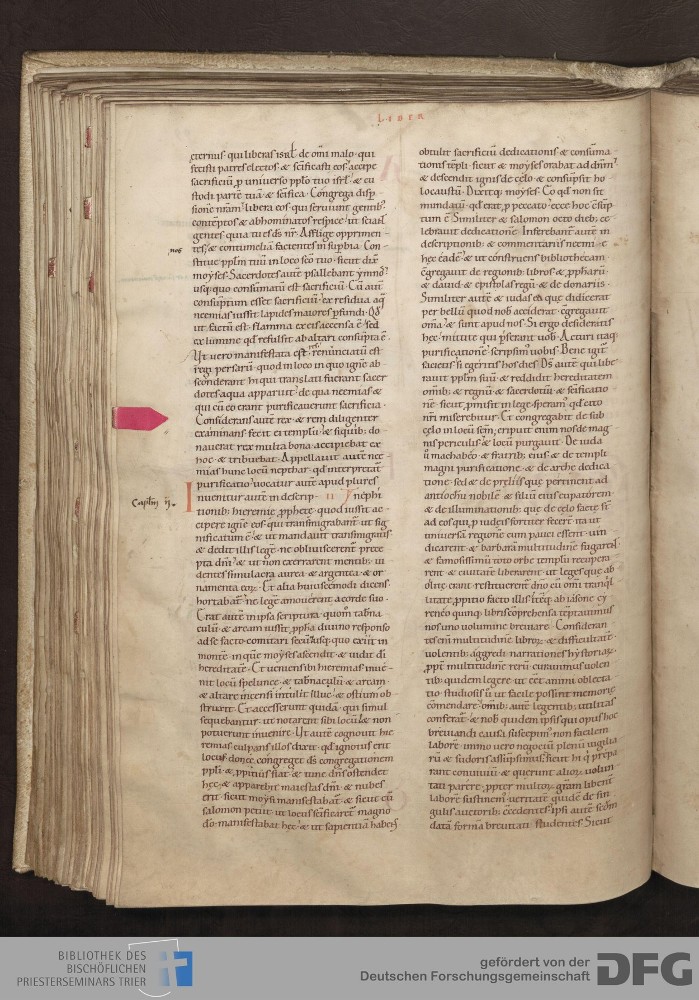 LIBER
ęternus · qui liberas isrl̄ de om̄i malo · qui
fecisti patres electos · & sc̄ificasti eos · accipe
sacrificiū p̱ universo pp̄lo tuo isrl̄ · & cu
stodi partē tuā · & sc̄ifica · Congrega disp̱
sionē nr̄am · libera eos · qui serviunt gentib; ·
contēptos & abhominatos respice · ut sciant
gentes · quia tu es ds̄ nr̄ · Afflige opprimen
nos
tes · & contumeliā facientes in sup̱bia · Con
stitue pp̄lm tuū in loco sc̄o tuo · sicut dix̄
moẏses · Sacerdotes autē psallebant ẏmnos
usq; quo consumatū est sacrificiū · Cū autē
consūptum esset sacrificiū · ex residua aq̄
neemias iussit lapides maiores p̱fundi · Qd̄
ut factū est · flamma ex eis accensa ē · sed
ex lumine qd̄ refulsit ab altari consūpta ē ·
Ut vero manifestata est res · renunciatū est
regi persarū · quod in loco in quo ignē ab
sconderant hi qui translati fuerant sacer
dotes · aqua apparuit · de qua neemias &
qui cū eo erant purificaverunt sacrificia ·
Considerans autē rex & rem diligenter
examinans · fecit ei templū · & siquib; do
naverat rex multa bona accipiebat ex
hoc · & tribuebat · Appellavit autē nee
mias hunc locū nepthar · qd̄ interpretat̄
purificatio · vocatur autē apud plures
Capłm ij.
Inveniuntur autē in descrip II nephi
tionib; hieremię prophetę · quod iussit ac
cipere ignē eos · qui transmigrabant · ut sig
nificatum ē · & ut mandavit transmigratis
& dedit illis legē · ne obliviscerent̄ prece
pta dn̄i · & ut non exerrarent mentib; vi
dentes simulacra aurea & argentea · & or
namenta eoꝝ · Et alia huiuscemodi dicens
hortabat̄ · ne legē amoverent a corde suo ·
Erat autē in ipsa scriptura · quom̄ tab̄na
culū & arcam iussit p̱pha divino responso
ad se facto comitari secū · usq; quo exiit in
monte · in quē moẏses ascendit · & vidit di
hereditatē · Et veniens ibi hieremias inve
nit locū speluncę · & tab̄naculū & arcam
& altare incensi intulit illuc · & ostium ob
struxit · Et accesserunt quidā · qui simul
sequebantur · ut notarent sibi locū · & non
potuerunt invenire · Ut autē cognovit hie
remias · culpans illos dixit · qd̄ ignotus erit
locus · donec congreget ds̄ congregationem
pp̄li · & p̱pitius fiat · & tunc dn̄s ostendet
hęc · & apparebit maiestas dn̄i · & nubes
erit · sicut moẏsi manifestabat̄ · & sicut cū
salomon petiit · ut locus sc̄ificaret̄ magno
do · manifestabat hęc · & ut sapientiā habens
obtulit sacrificiū dedicationis · & consuma
tionis tēpli · sicut & moẏses orabat ad dn̄m
& descendit ignis de cęlo · & consūpsit ho
locaustū · Dixitq; moẏses · Eo qd̄ non sit
mandatū qd̄ erat p̱ peccato · ecce hoc c̄sūp
tum ē · Similiter & salomon octo dieb; ce
lebravit dedicationē · Inferebant̄ autē in
descriptionib; & commentariis neemię
hęc eadē · & ut construens bibliothecam
c̄gregavit de regionib; libros · & p̱phetarū
& david · & epistolas regū · & de donariis ·
Similiter autē & iudas ea que didicerat
per bellū quod nob̄ acciderat c̄gregavit
om̄a · & sunt apud nos · Si ergo desideratis
hęc · mittite qui p̱ferant vob̄ · Acturi itaq;
purificationē · scripsim̄ vobis · Bene igit̄
facietis · si egeritis hos dies · Ds̄ autē qui libe
ravit pp̄lm suū · & reddidit hereditatem
om̄ib; · & regnū & sacerdotiū · & sc̄ificatio
nē · sicut p̱misit in lege · speram̄ qd̄ cito
nr̄i miserebitur · Et congregabit de sub
cęlo in locū sc̄m · eripuit enim nos de mag
nis periculis · & locū purgavit · De iuda
ū machabeo · & fratrib; eius · & de templi
magni purificatione · & de arhę dedica
tione · sed & de p̱eliis que pertinent ad
antiochū nobilē · & filiū eius eupatorem
& de illuminationib; · quę de cęlo factę st̄
ad eos qui p̱ iudeis fortiter fecer̄ · ita ut
universā regionē cum pauci essent · vin
dicarent · & barbarā multitudinē fugarent
& famosissimū toto orbe templū recupera
rent · & civitatē liberarent · ut leges que ab
olitę erant restituerent̄ · dn̄o cū om̄i tranq̄l
litate p̱pitio facto illis · Itēq; ab iasone cẏ
reneo quinq; libris c̄prehensa · tēptavimus
nos uno volumine breviare · Consideran
tes enī multitudinē libroꝝ · & difficultatē
volentib; aggredi narrationes hẏstoriaꝝ
p̱pt̄ multitudinē rerū · curavimus volen
tib; quidem legere ut eēt animi oblecta
tio · studiosis ū ut facile possint memorię
cōmendare · om̄ib; autē legentib; utilitas
conferat̄ · & nob̄ quidem ipsis qui opus hoc
breviandi causa suscepim̄ · non facilem
laborē · immo vero negociū plenū vigilia
rū & sudoris assūpsimus · sicut hi q̄ prepa
rant convivium · & querunt alioꝝ volun
tati parere · p̱pter multoꝝ gr̄am · libent̄
laborē sustinem̄ · veritatē quidē de sin
gulis auctorib; c̄cedentes · ipsi autē secdm̄
datā formā brevitati studentes · Sicut
BIBLIOTHEK DES
BISCHÖFLICHEN
PRIESTERSEMINARS TRIER
gefördert von der
Deutschen Forschungsgemeinschaft
DFG